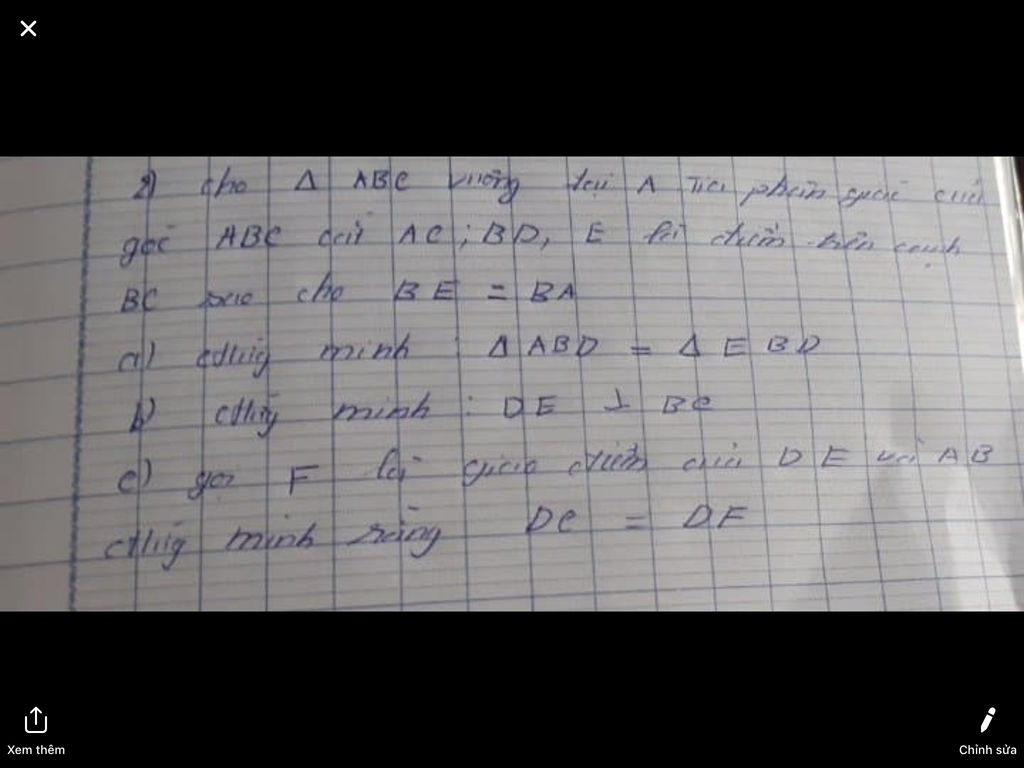 2) cho Δ ABC vuông tại A Tia phân giác của
góc ABC cắt AC ; BD, E là điểm trên cạnh
BC sao cho BE = BA
a) chứng minh : Δ ABD = Δ EBD
b) chứng minh : DE ⊥ BC
c) gọi F là giao điểm của DE và AB
chứng minh rằng DC = DF
Xem thêm
Chỉnh sửa